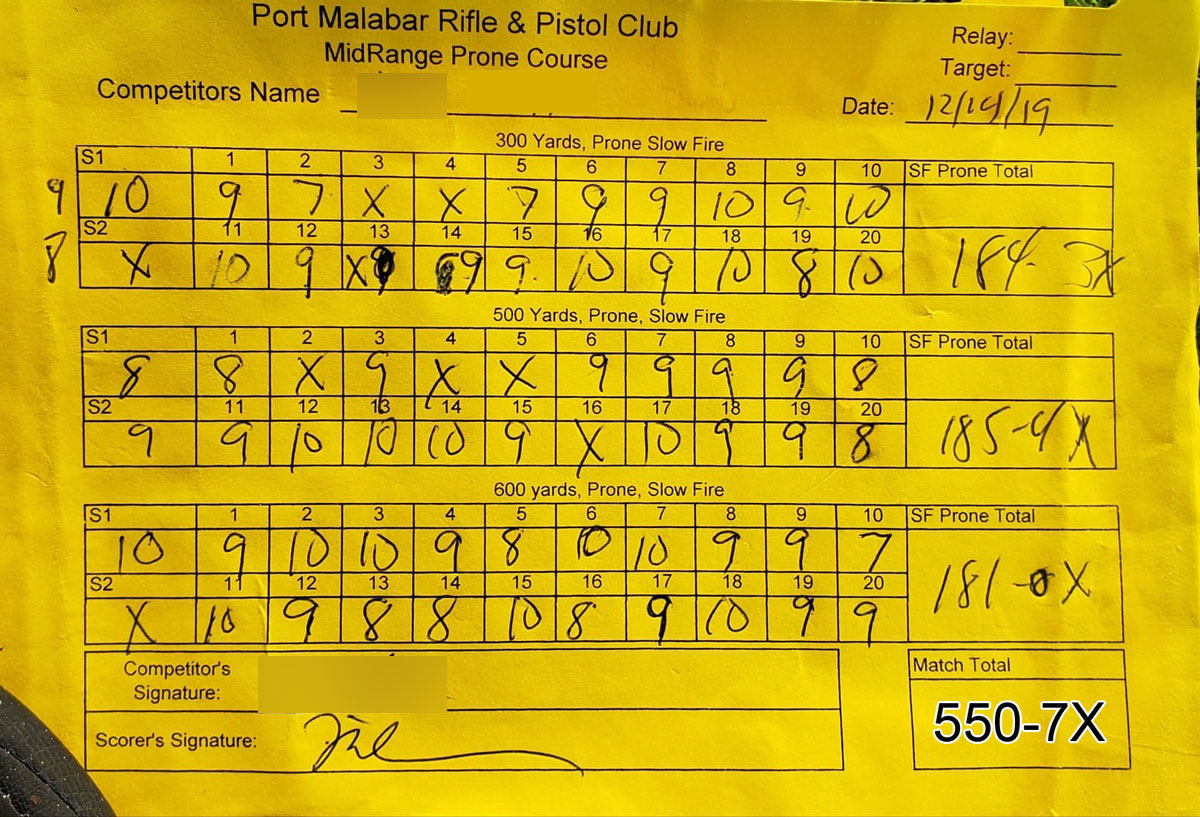 Port Malabar Rifle & Pistol Club
MidRange Prone Course
Relay:
Target:
Competitors Name
Date: 12/14/19
300 Yards, Prone Slow Fire
S1 1 2 3 4 5 6 7 8 9 10 SF Prone Total
9 10 9 7 X X 7 9 9 10 9 10
S2 11 12 13 14 15 16 17 18 19 20
8 X 10 9 X 9 9 10 9 10 8 10 184-3X
500 Yards, Prone, Slow Fire
S1 1 2 3 4 5 6 7 8 9 10 SF Prone Total
8 8 X 9 X X 9 9 9 9 8
S2 11 12 13 14 15 16 17 18 19 20
9 9 10 10 10 9 X 10 9 9 8 185-4X
600 yards, Prone, Slow Fire
S1 1 2 3 4 5 6 7 8 9 10 SF Prone Total
10 9 10 10 9 8 10 10 9 9 7
S2 11 12 13 14 15 16 17 18 19 20
X 10 9 8 8 10 8 9 10 9 9 181-0X
Competitor's
Signature:
Match Total
550-7X
Scorer's Signature: